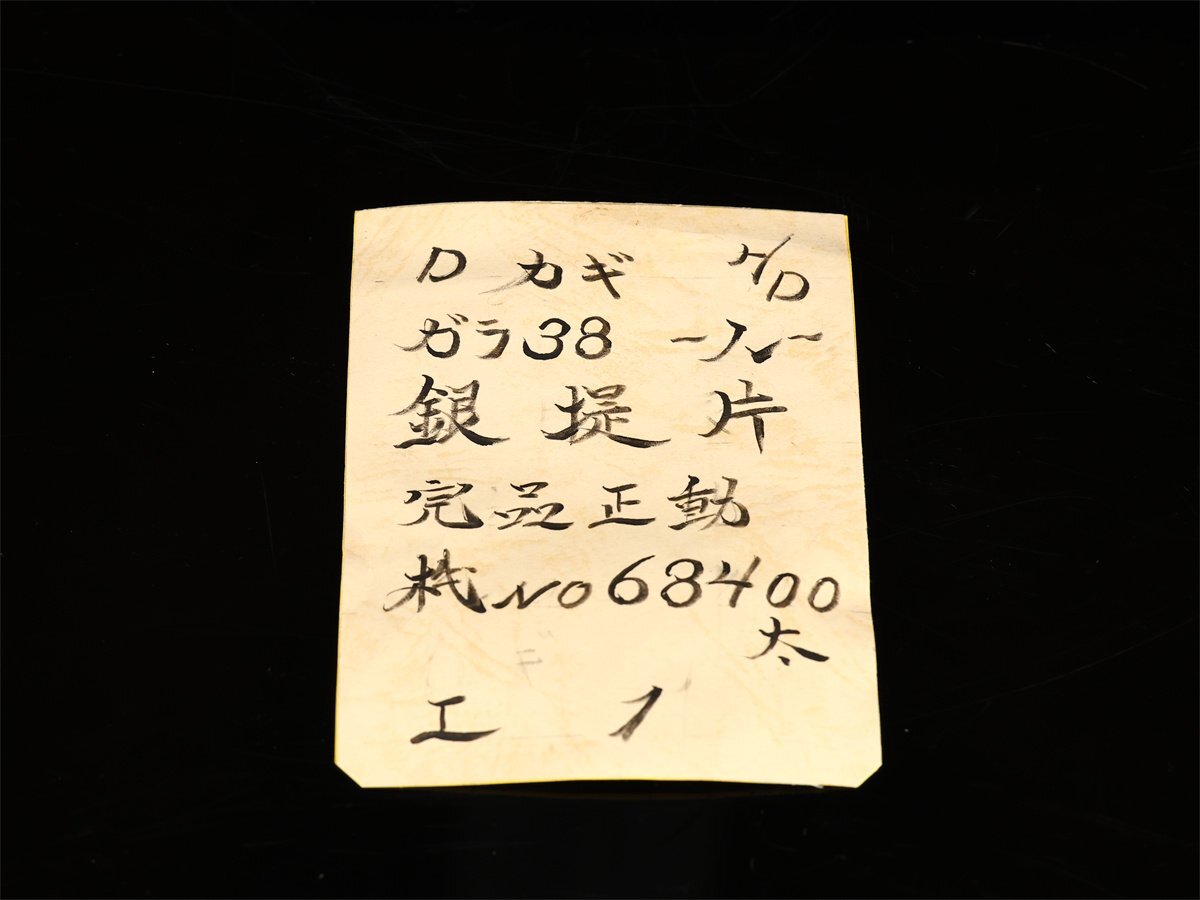 D カギ ケ/D
ガラ38 -ソン-
銀提片
完品正動
機No68400
太
エ イ